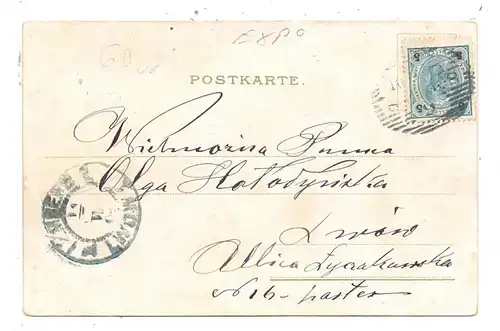 60
EXPO
POSTKARTE.
5 5
Wielmożna Panna
Olga Hołodyńska
Lwów
Ulica Łyczakowska
N 16 - parter